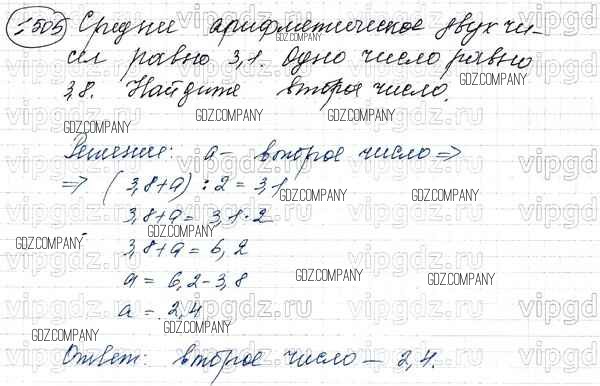 1505 Среднее арифметическое двух чи-
сел равно 3,1. Одно число равно
3,8. Найдите второе число.
Решение: a - второе число =>
=> (3,8+a) : 2 = 3,1
3,8+a = 3,1·2
3,8+a = 6,2
a = 6,2-3,8
a = 2,4
Ответ: второе число - 2,4.
vipgdz.ru
GDZ.COMPANY